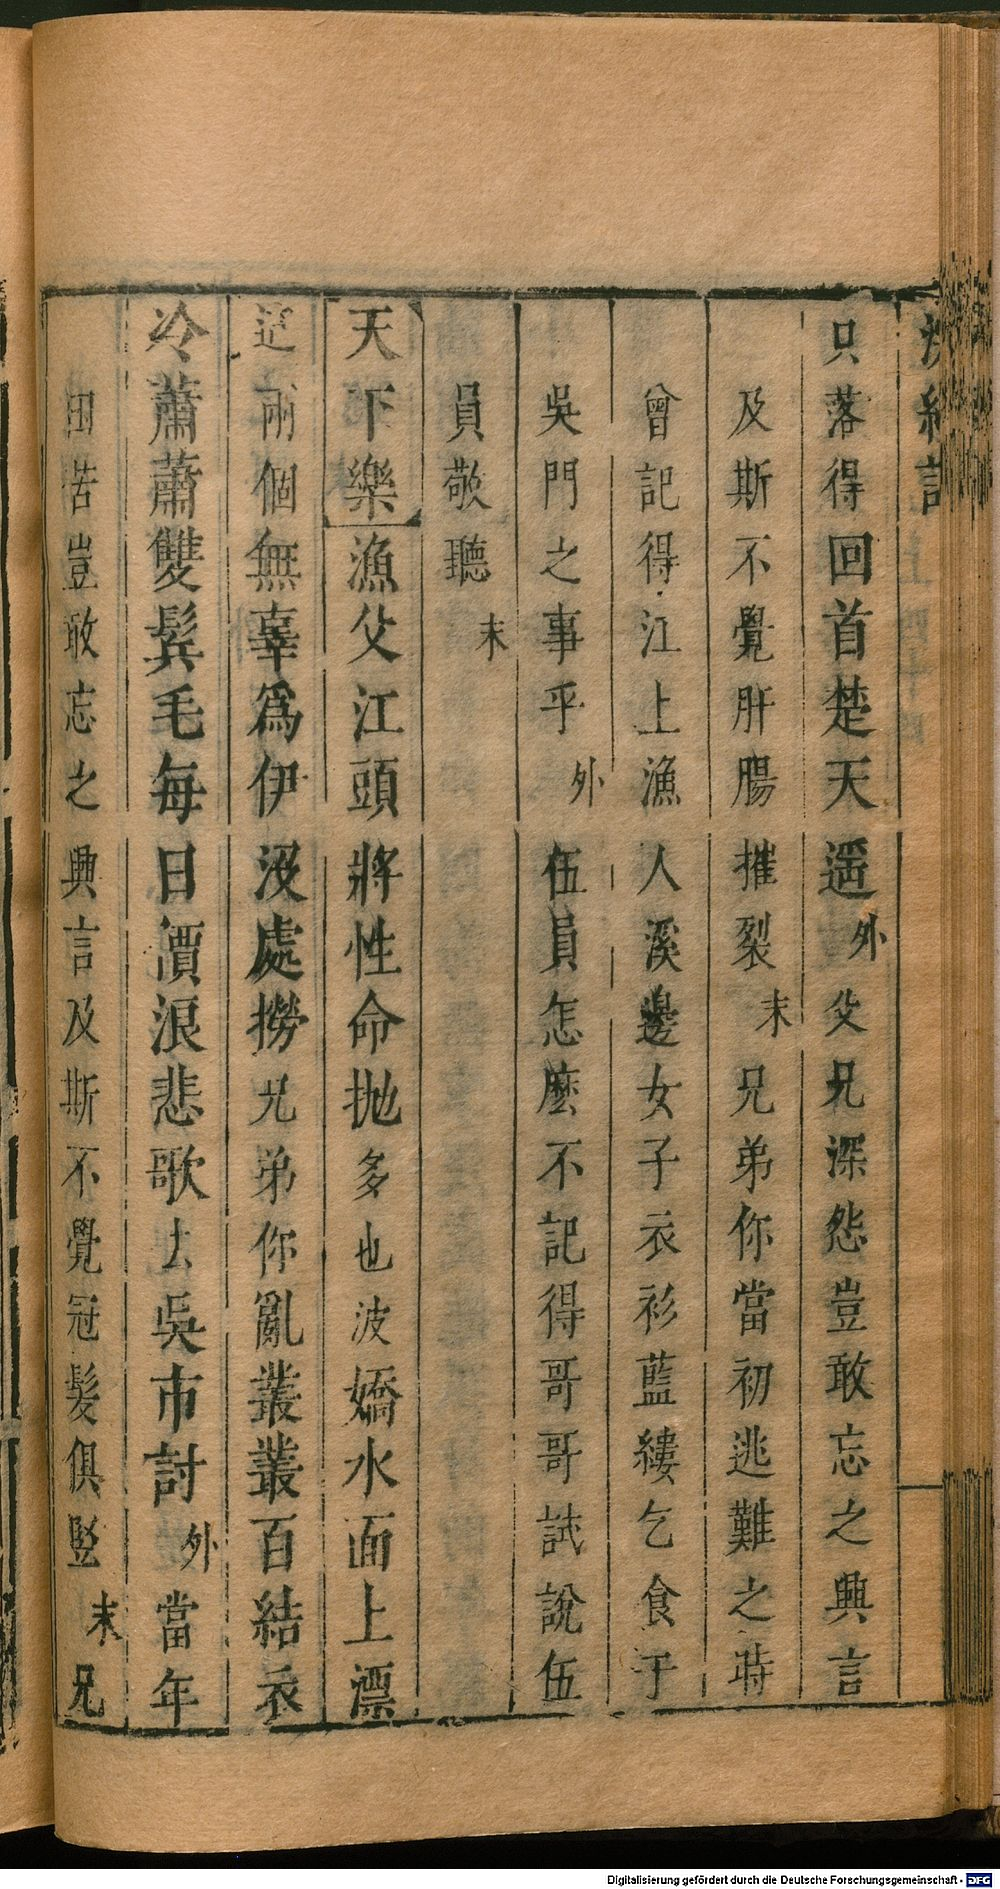 浣紗記
只落得回首楚天遥外父兄深怨豈敢忘之興言
及斯不覺肝腸摧裂末兄弟你當初逃難之時
曾記得江上漁人溪邊女子衣衫藍縷乞食于
吳門之事乎外伍員怎麼不記得哥哥試說伍
員敬聽末
天下樂漁父江頭將性命拋多也波嬌水面上漂
這兩個無辜爲伊沒處撈兄弟你亂叢叢百結衣
冷蕭蕭雙鬂毛每日價浪悲歌去吳市討外當年
困苦豈敢忘之興言及斯不覺冠髮俱竖末兄
Digitalisierung gefördert durch die Deutsche Forschungsgemeinschaft - DFG